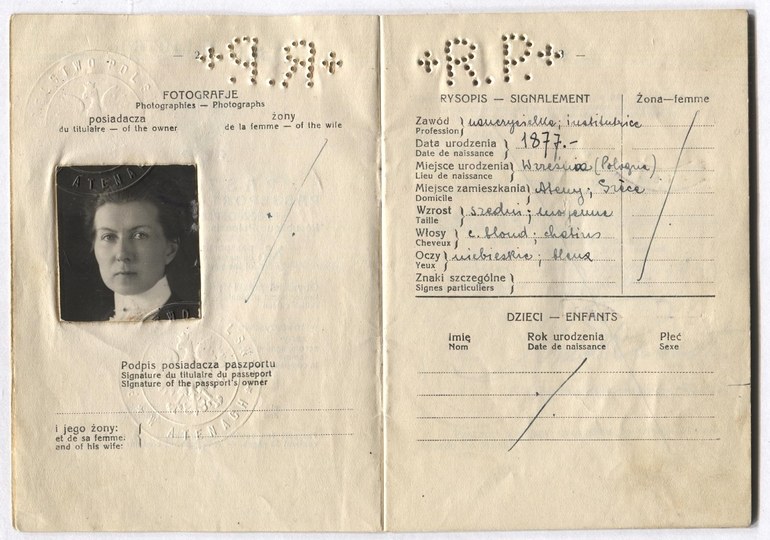 — 2
P.R
FOTOGRAFJE
Photographies — Photographs
posiadacza
du titulaire — of the owner
żony
de la femme — of the wife
ATENACH
Podpis posiadacza paszportu
Signature du titulaire du passeport
Signature of the passport's owner
ATENACH
i jego żony:
et de sa femme:
and of his wife:
R.P
—
RYSOPIS — SIGNALEMENT
Żona—femme
Zawód nauczycielka; institutrice
Profession
Data urodzenia 1877.-
Date de naissance
Miejsce urodzenia Września (Pologne)
Lieu de naissance
Miejsce zamieszkania Ateny; Grèce
Domicile
Wzrost średni; moyenne
Taille
Włosy c. blond; chatins
Cheveux
Oczy niebieskie; bleus
Yeux
Znaki szczególne
Signes particuliers
DZIECI — ENFANTS
Imię
Nom
Rok urodzenia
Date de naissance
Płeć
Sexe